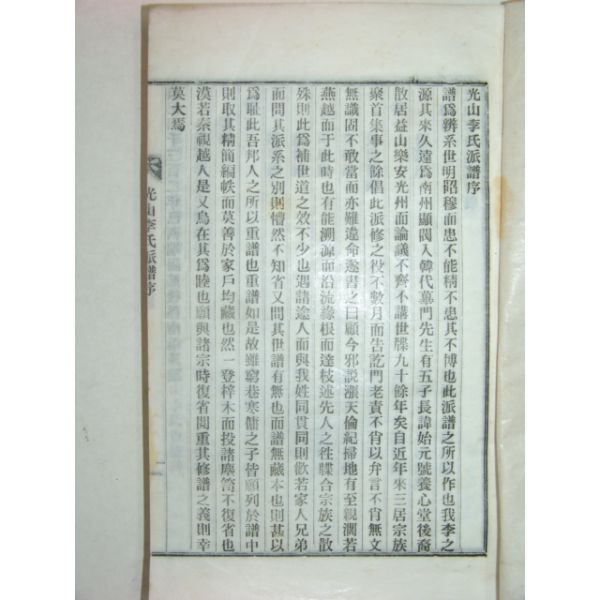 光山李氏派譜序
譜爲辨系世明昭穆而患不能精不患其不博也此派譜之所以作也我李之
源其來久遠爲南州顯閥入韓代墓門先生有五子長諱始元號養心堂後裔
散居益山樂安光州而論議不齊不講世牒九十餘年矣自近年來三居宗族
聚首集事之餘倡此派修之役不數月而告訖門老責不肖以弁言不肖無文
無識固不敢當而亦難違命遂書之曰顧今邪說漲天倫紀掃地有至親濶若
燕越而于此時也有能溯源而沿流緣根而達枝述先人之徃牒合宗族之散
殊則此爲補世道之效不少也遇諸塗人而與我姓同貫同則歡若家人兄弟
而問其派系之別則懵然不知省又問其世譜有無也而譜無藏本也則甚以
爲耻此吾邦人之所以重譜也重譜如是故雖窮巷寒傭之子皆顧列於譜中
則取其精簡編帙而莫善於家戶均藏也然一登梓木而投諸塵笥不復省也
漠若秦視越人是又烏在其爲睦也願與諸宗時復省閱重其修譜之義則幸
莫大焉
光山李氏派譜序
一